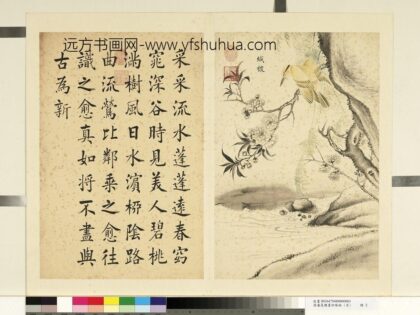 远方书画网-www.yfshuhua.com
纖穠
采采流水蓬蓬遠春窈
窕深谷時見美人碧桃
滿樹風日水濱柳陰路
曲流鶯比鄰乘之愈往
識之愈真如將不盡與
古為新